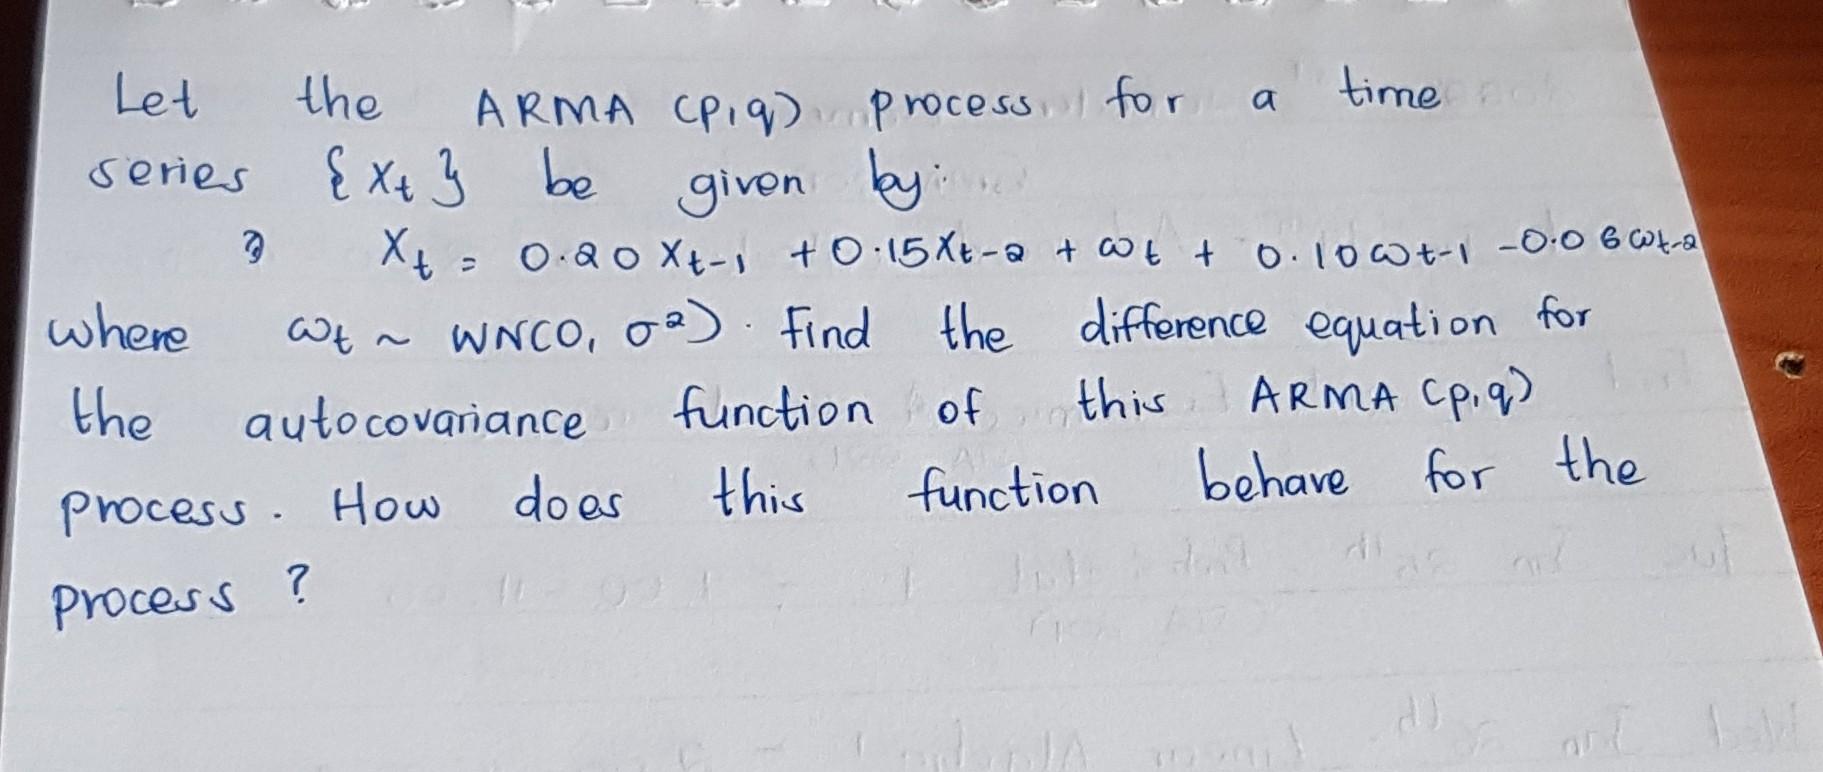 Let the ARMA (p,q) process for a time
series {Xt} be given by:
Xt = 0.20Xt-1 + 0.15Xt-2 + ωt + 0.10ωt-1 -0.06ωt-2
where ωt ~ WN(0, σ2). Find the difference equation for
the autocovariance function of this ARMA (p,q)
process. How does this function behave for the
process ?